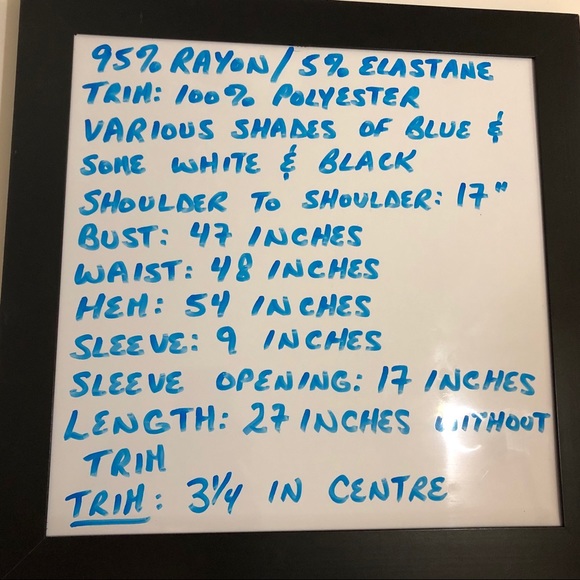 95% RAYON/5% ELASTANE
TRIM: 100% POLYESTER
VARIOUS SHADES OF BLUE &
SOME WHITE & BLACK
SHOULDER TO SHOULDER: 17"
BUST: 47 INCHES
WAIST: 48 INCHES
HEM: 54 INCHES
SLEEVE: 9 INCHES
SLEEVE OPENING: 17 INCHES
LENGTH: 27 INCHES WITHOUT
TRIM
TRIM: 3 1/4 IN CENTRE